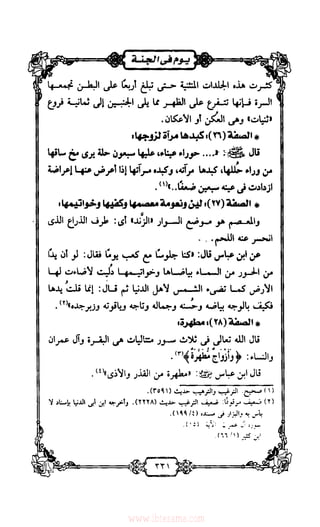 يوم في الجنة
كثرت هذه الجلدات المتثنية حتى تبلغ أربعًا على البطن تجمعها
السرة فإنها تتفرع على الظهر مما يلى الجنبين إلى ثمانية فروع
«ثنيات» وهى العكن أو الأعكان.
* الصفة (٢٦): كبدها مرآة لزوجها:
قال ﷺ: «.... حوراء عيناء، عليها سبعون حلة يرى مخ ساقها
من وراء حللها، كبدها مرآته، وكبده مرآتها إذا أعرض عنها إعراضة
ازدادت فى عينه سبعين ضعفًا..»(١).
* الصفة (٢٧): لين ونعومة معصمها وكفيها وخواتيمها:
والمعصم هو موضع السوار «الزَّند» أى: طرف الذراع الذى
انحسر عنه اللحم. . .
عن ابن عباس قال: «كنا جلوسًا مع كعب يومًا فقال: لو أن يدًا
من الحور من السماء ببياضها وخواتيمها دُليت لأضاءت لها
الأرض كما تضىء الشمس لأهل الدنيا ثم قال: إنما قلتُ يدها
فكيف بالوجه بياضه وحُسنه وجماله وتاجه وياقوته وزبرجده»(٢).
* الصفة (٢٨): مطهرة:
قال الله تعالى فى ثلاث سور متتاليات هى البقرة وآل عمران
والنساء: ﴿وَأَزْوَاجٌ مُّطَهَّرَةٌ﴾(٣).
قال ابن عباس: «مطهرة من القذر والأذى»(٤).
(١) صحيح الترغيب والترهيب حديث (٣٥٩١).
(٢) ضعيف موقوفًا: ضعيف الترغيب حديث (٢٢٢٨)، وأخرجه ابن أبى الدنيا بإسناد لا
بأس به والبزار فى مسنده (١٩٩/٤).
سورة آل عمران الآية (١٥).
ابن كثير (٦٦/١).
٢٣١
www.ibtesama.com